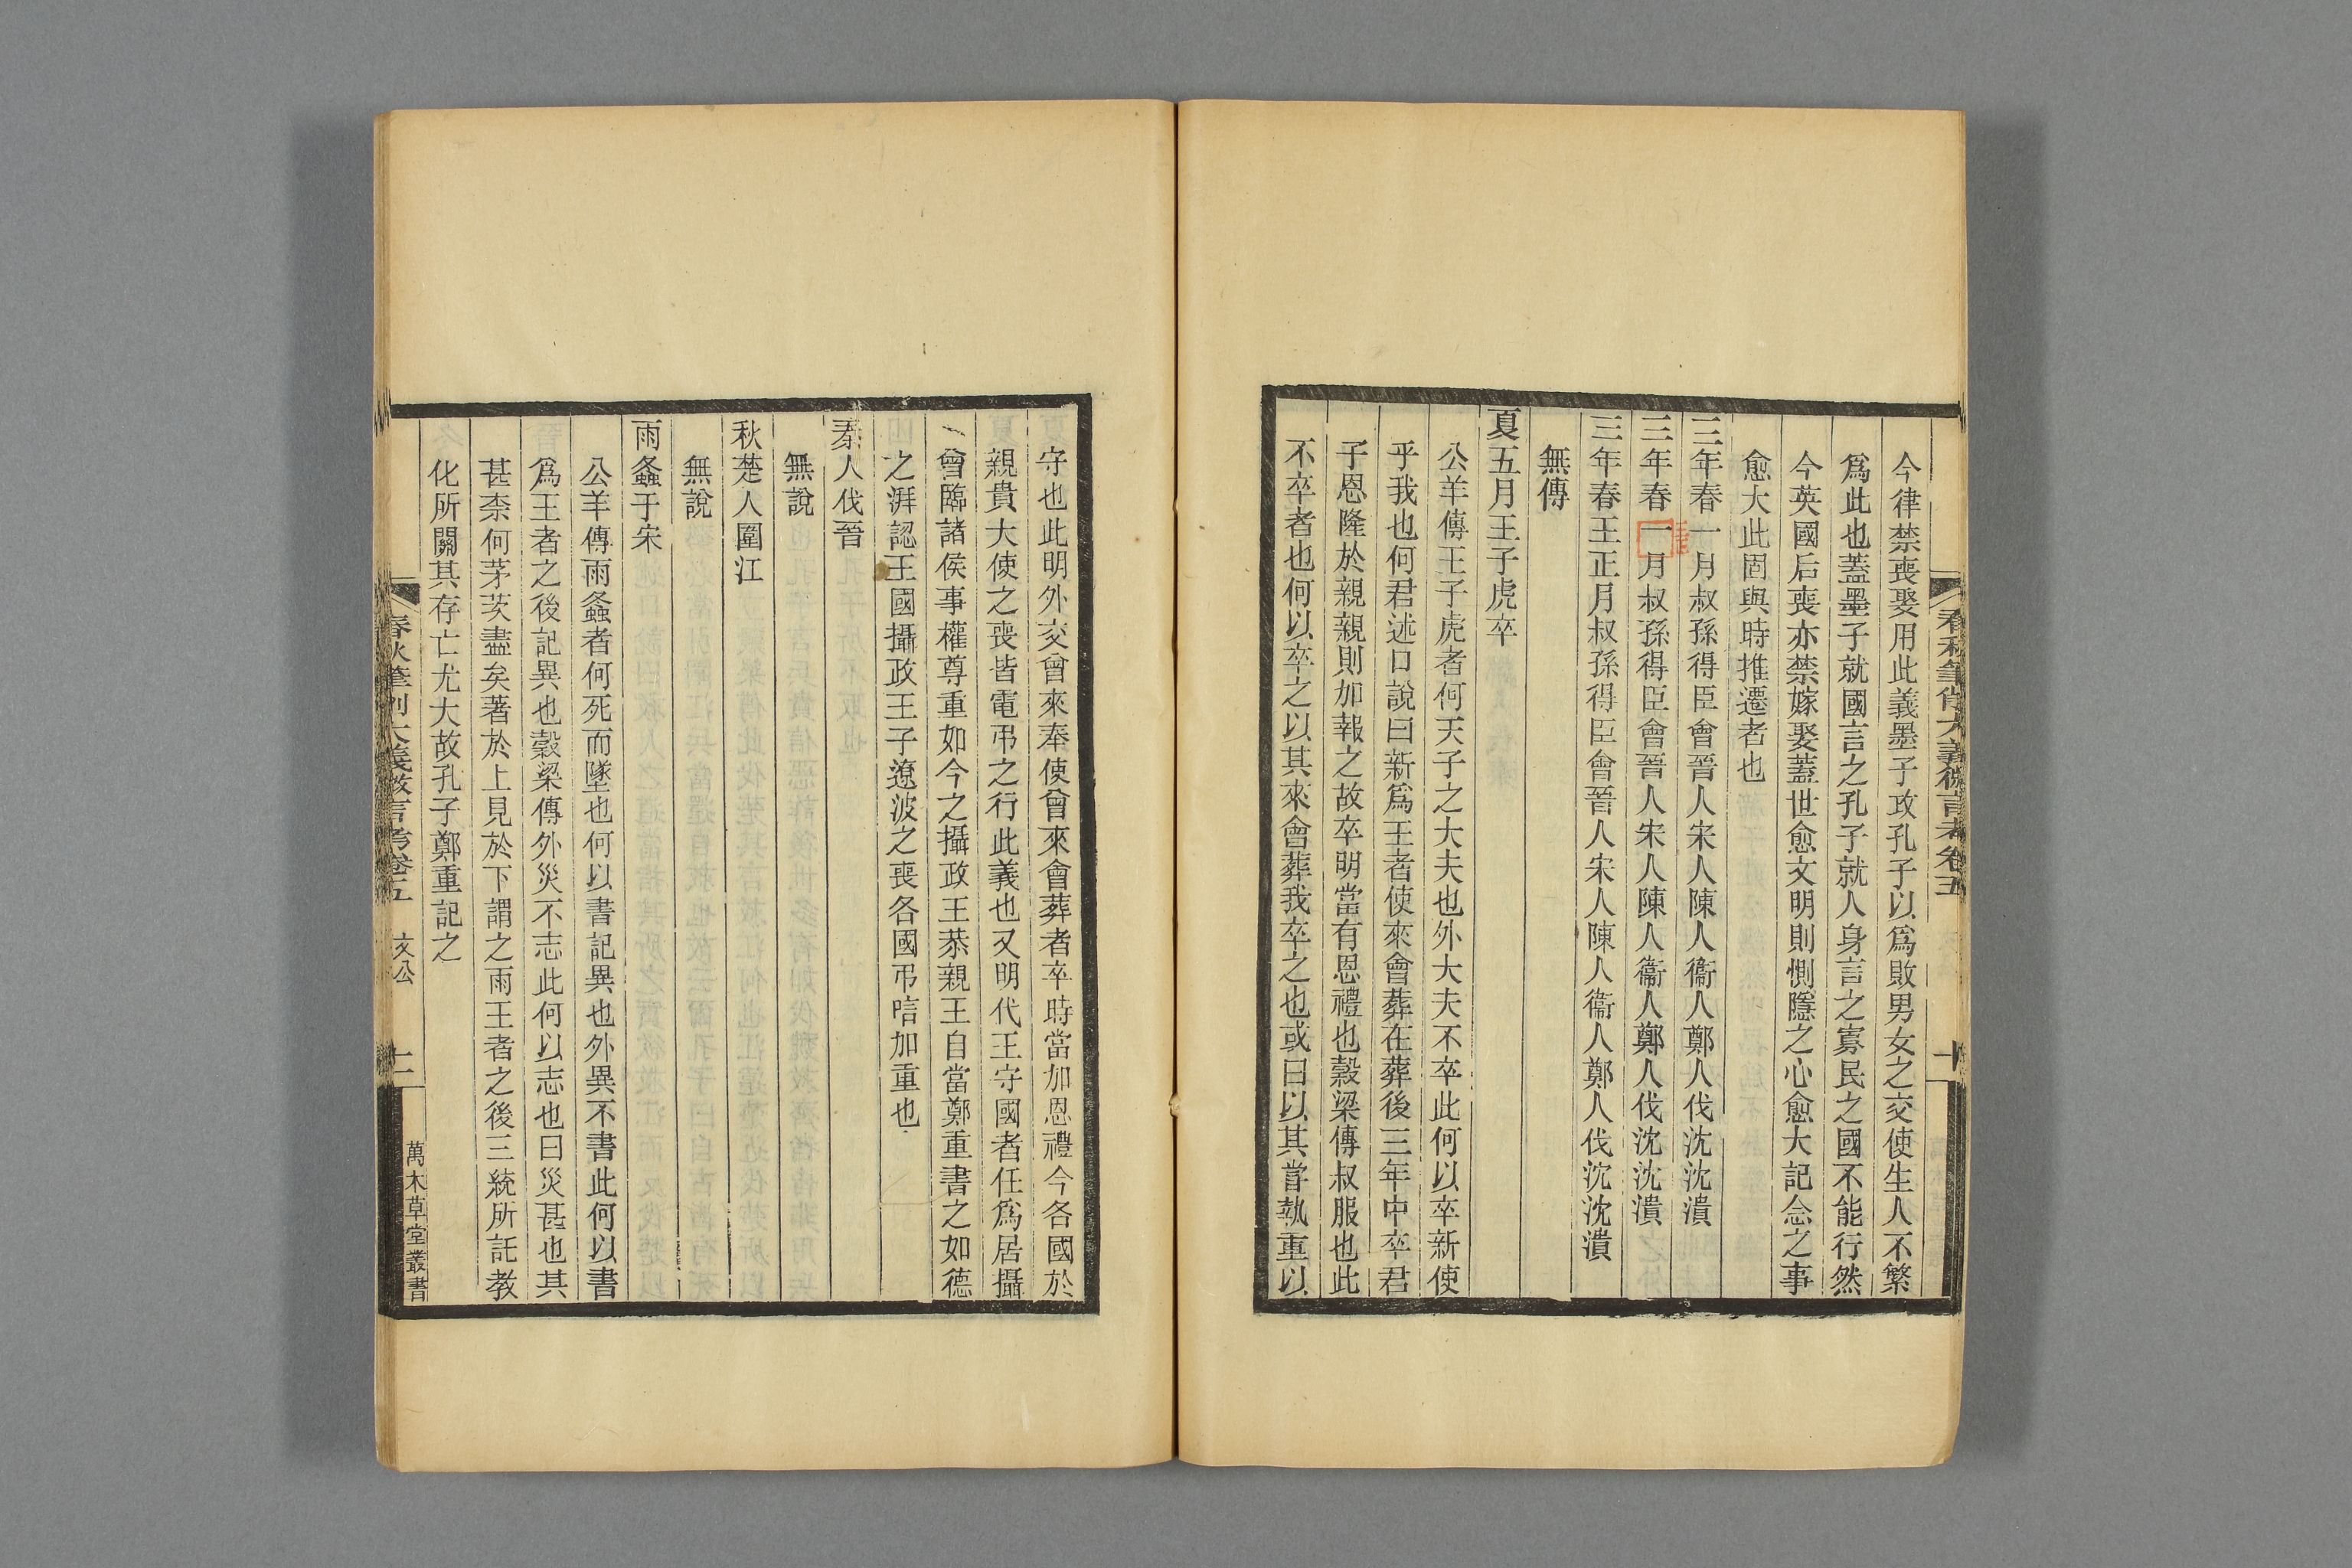 春秋筆削大義微言考卷五
十
今律禁喪娶用此義墨子攻孔子以爲敗男女之交使生人不繁
爲此也蓋墨子就國言之孔子就人身言之寡民之國不能行然
今英國后喪亦禁嫁娶蓋世愈文明則惻隱之心愈大記念之事
愈大此固與時推遷者也
三年春一月叔孫得臣會晉人宋人陳人衞人鄭人伐沈沈潰
三年春一月叔孫得臣會晉人宋人陳人衞人鄭人伐沈沈潰
三年春王正月叔孫得臣會晉人宋人陳人衞人鄭人伐沈沈潰
無傳
夏五月王子虎卒
公羊傳王子虎者何天子之大夫也外大夫不卒此何以卒新使
乎我也何君述口說曰新爲王者使來會葬在葬後三年中卒君
子恩隆於親親則加報之故卒明當有恩禮也穀梁傳叔服也此
不卒者也何以卒之以其來會葬我卒之也或曰以其嘗執重以
守也此明外交曾來奉使曾來會葬者卒時當加恩禮今各國於
親貴大使之喪皆電弔之行此義也又明代王守國者任爲居攝
曾臨諸侯事權尊重如今之攝政王恭親王自當鄭重書之如德
之湃認王國攝政王子遼波之喪各國弔唁加重也
秦人伐晉
無說
秋楚人圍江
無說
雨螽于宋
公羊傳雨螽者何死而墜也何以書記異也外異不書此何以書
爲王者之後記異也穀梁傳外災不志此何以志也曰災甚也其
甚柰何茅茨盡矣著於上見於下謂之雨王者之後三統所託教
化所關其存亡尤大故孔子鄭重記之
春秋筆削大義微言考卷五 文公
十一
萬木草堂叢書